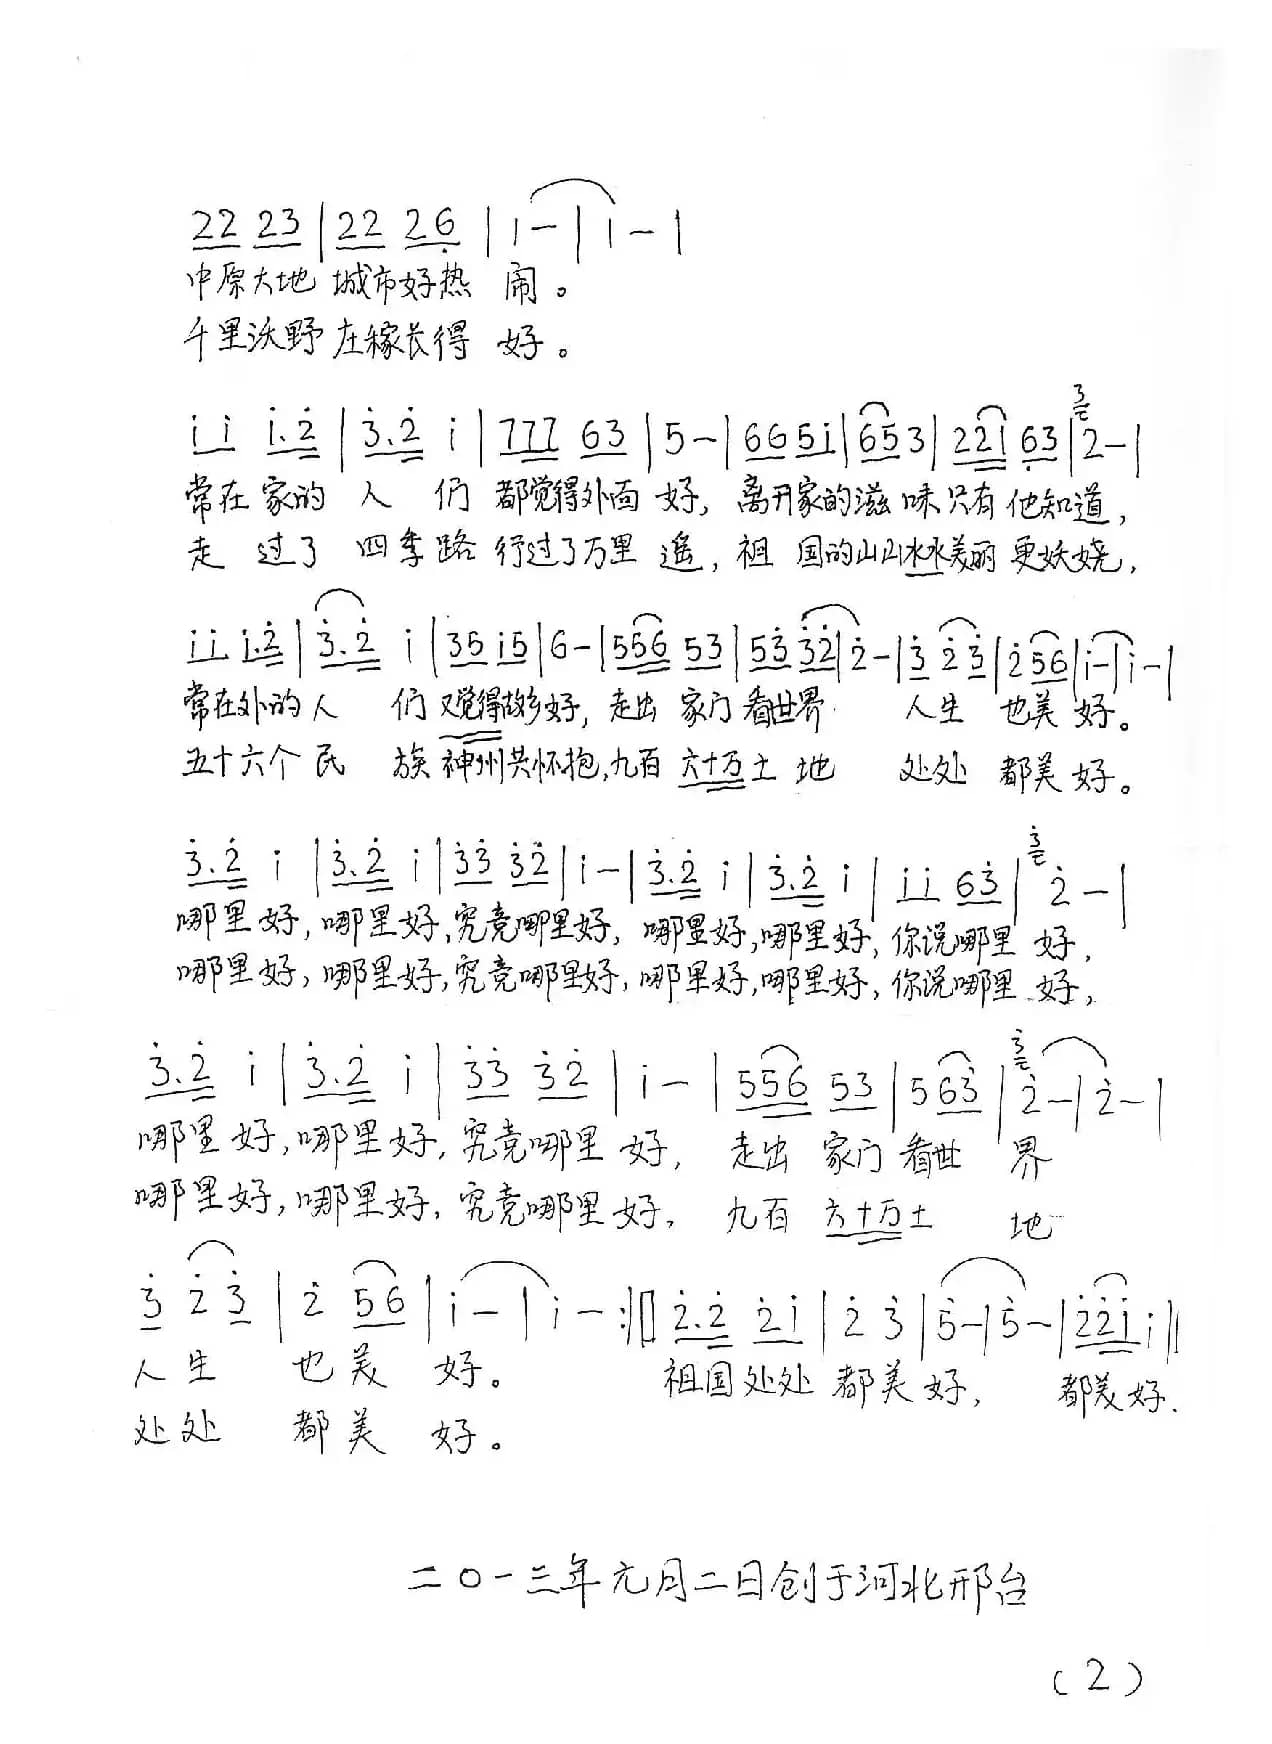 22 23 | 22 26 | i — | i — |
中原大地 城市好热 闹。
千里沃野 庄稼长得 好。
i i i.2 | 3.2 i | 777 63 | 5 — | 66 5i | 653 | 221 63 | 3 2 — |
常在家的 人 们 都觉得外面 好，离开家的滋味只有他知道，
走 过了 四季路 行过了万里 遥，祖 国的山山水水美丽 更妖娆，
i i i.2 | 3.2 i | 35 i5 | 6 — | 556 53 | 53 32 | 2 — | 3 2 3 | 2 56 | i — | i — |
常在外的人 们 又觉得故乡好，走出 家门看世界 人生 也美 好。
五十六个民 族 神州共怀抱，九百 六十万土 地 处处 都美好。
3.2 i | 3.2 i | 33 32 | i — | 3.2 i | 3.2 i | i i 63 | 3 2 — |
哪里好，哪里好，究竟哪里好，哪里好，哪里好，你说哪里 好，
哪里好，哪里好，究竟哪里好，哪里好，哪里好，你说哪里 好，
3.2 i | 3.2 i | 33 32 | i — | 556 53 | 5 63 | 3 2 — | 2 — |
哪里好，哪里好，究竟哪里 好，走出 家门 看世 界
哪里好，哪里好，究竟哪里好，九百 六十万土 地
3 2 3 | 2 56 | i — | i — :‖ 2.2 2i | 2 3 | 5 — | 5 — | 221 i ‖
人生 也美 好。 祖国处处 都美好， 都美好.
处处 都美 好。
二〇一三年元月二日创于河北邢台
(2)